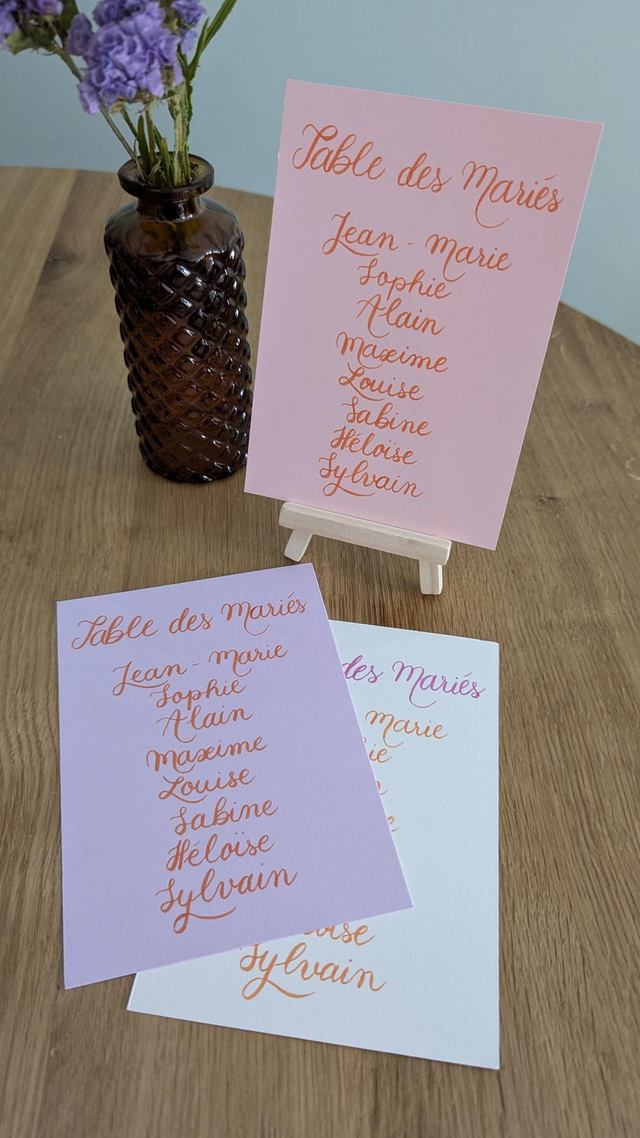 Table des Mariés
Jean - Marie
Sophie
Alain
Maxime
Louise
Sabine
Héloïse
Sylvain
Table des Mariés
Jean - Marie
Sophie
Alain
Maxime
Louise
Sabine
Héloïse
Sylvain
des Mariés
Marie
Sylvain